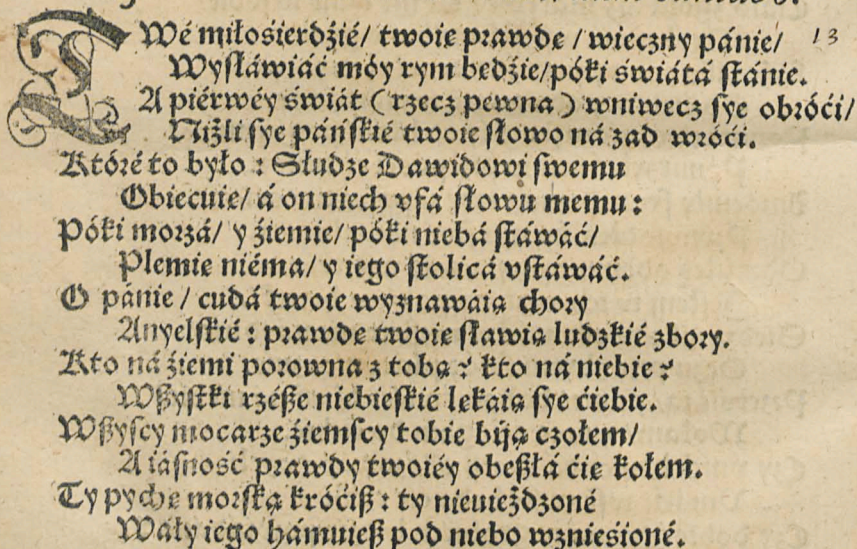 TWé miłosierdźié/ twoię prawdę / wieczny pánie/ 13
Wysławiáć móy rym będźie/póki świátá stánie.
A piérwéy świát (rzecz pewna) wniwecz sye obróći/
Niżli sye páńskié twoie słowo ná zad wróći.
Któré to było : Słudze Dawidowi swemu
Obiecuię/ á on niech vfá słowu memu :
Póki morzá/ y źiemie/ póki niebá stáwáć/
Plemię niéma/ y iego stolicá vstáwáć.
O pánie / cudá twoie wyznawáią chory
Anyelskié : prawdę twoię sławią ludzkié zbory.
Kto ná źiemi porowna z tobą? kto ná niebie?
Wßystki rzéße niebieskié lękáią sye ćiebie.
Wßyscy mocarze źiemscy tobie biją czołem/
A iásność prawdy twoiéy obeßłá ćię kołem.
Ty pychę morską króćiß : ty nieuieżdzoné
Wały iego hámuieß pod niebo wzniesioné.